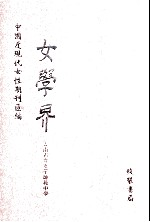 中國近現代女性期刊匯編
女學界
綫裝書局